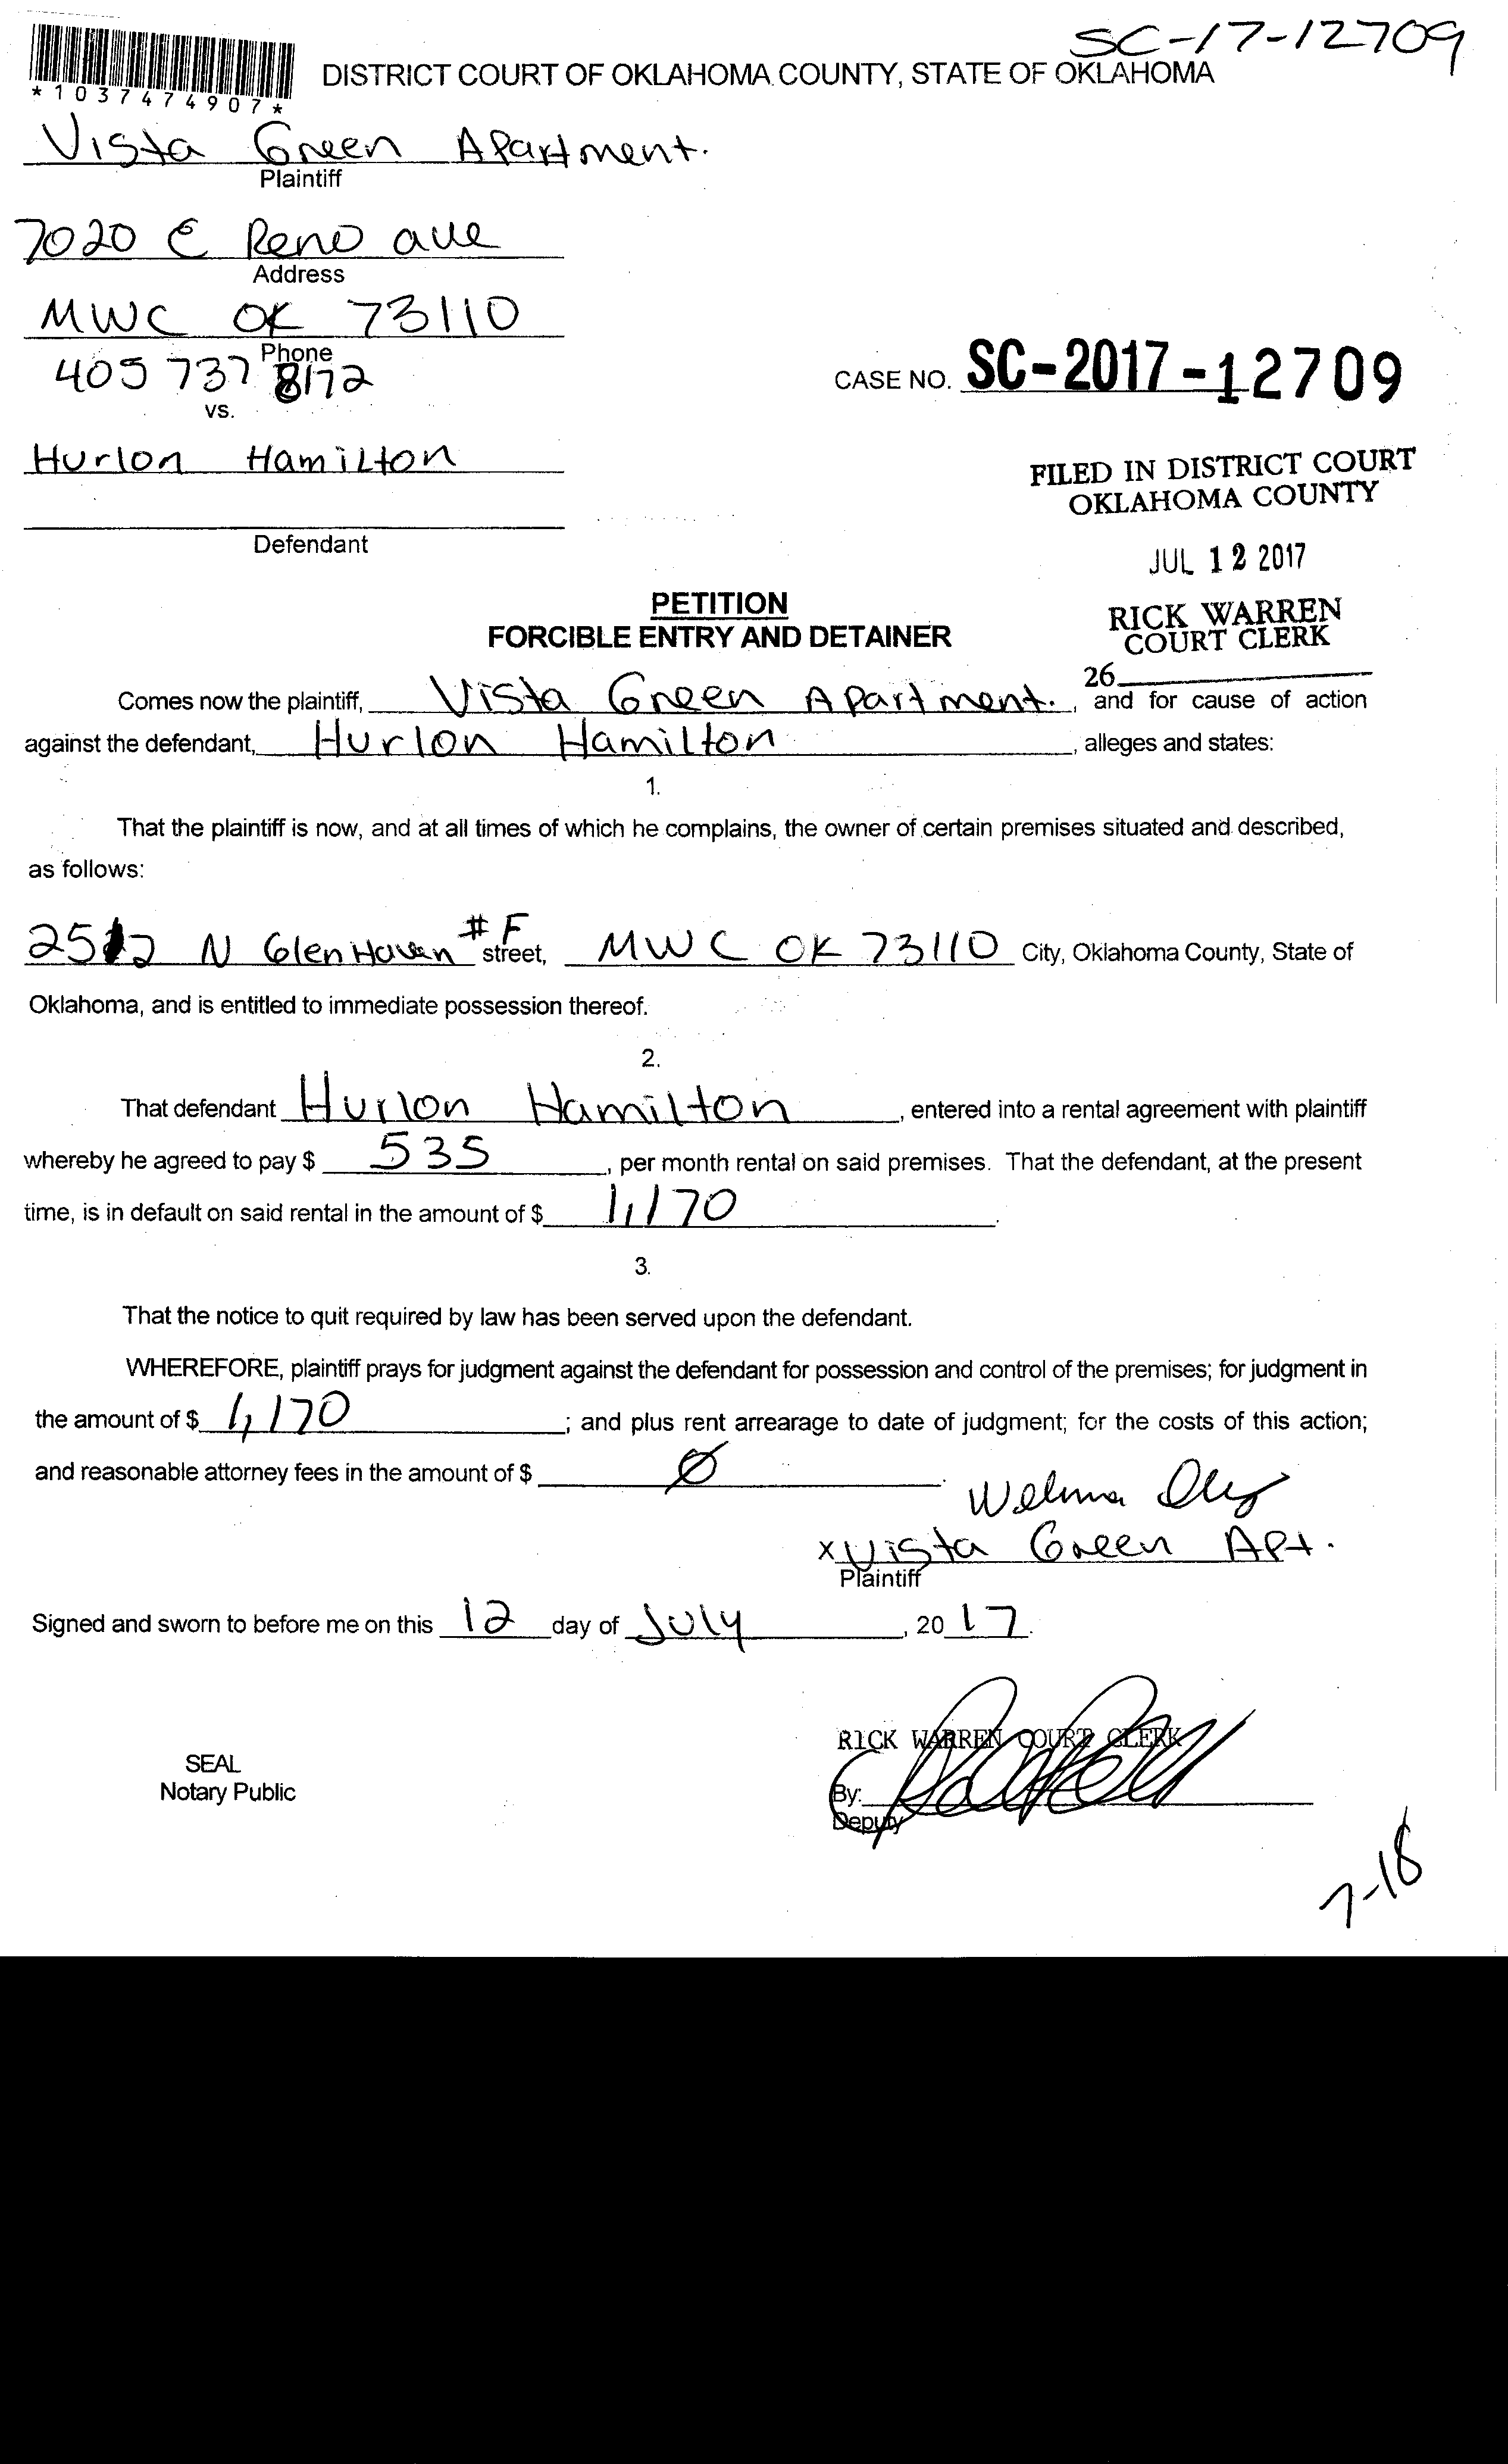 SC-17-12709
DISTRICT COURT OF OKLAHOMA COUNTY, STATE OF OKLAHOMA
*1037474907*
Vista Green Apartment.
Plaintiff
7020 E Reno ave
Address
MWC OK 73110
Phone
405 737 8172
CASE NO. SC-2017-12709
vs.
Hurlon Hamilton
FILED IN DISTRICT COURT
OKLAHOMA COUNTY
Defendant
JUL 12 2017
PETITION
FORCIBLE ENTRY AND DETAINER
RICK WARREN
COURT CLERK
26
Comes now the plaintiff, Vista Green Apartment. , and for cause of action
against the defendant, Hurlon Hamilton , alleges and states:
1.
That the plaintiff is now, and at all times of which he complains, the owner of certain premises situated and described,
as follows:
2512 N Glen Haven #F street, MWC OK 73110 City, Oklahoma County, State of
Oklahoma, and is entitled to immediate possession thereof.
2.
That defendant Hurlon Hamilton , entered into a rental agreement with plaintiff
whereby he agreed to pay $ 535 , per month rental on said premises. That the defendant, at the present
time, is in default on said rental in the amount of $ 1,170 .
3.
That the notice to quit required by law has been served upon the defendant.
WHEREFORE, plaintiff prays for judgment against the defendant for possession and control of the premises; for judgment in
the amount of $ 1,170 ; and plus rent arrearage to date of judgment; for the costs of this action;
and reasonable attorney fees in the amount of $ Ø .
x Vista Green Apt.
Plaintiff
Signed and sworn to before me on this 12 day of July , 20 17.
RICK WARREN COURT CLERK
SEAL
Notary Public
By:
Deputy
7-18